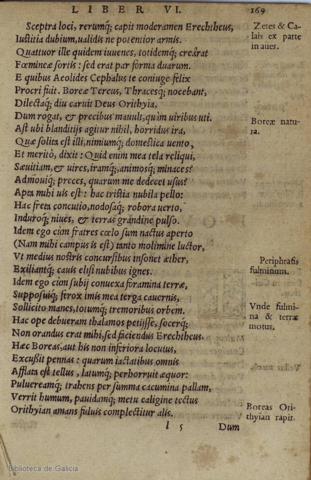 LIBER VI. 169
Sceptra loci, rerumq; capit moderamen Erechtheus,
Iustitia dubium, validis ne potentior armis.
Quattuor ille quidem iuuenes, totidemq; crearat
Fœmineæ sortis: sed erat par forma duarum.
E quibus Aeolides Cephalus te coniuge felix
Procri fuit. Boreæ Tereus, Thracesq; nocebant,
Dilectaq; diu caruit Deus Orithyia,
Dum rogat, & precibus mauult, quàm uiribus uti.
Ast ubi blanditijs agitur nihil, horridus ira,
Quæ solita est illi, nimiumq; domestica uento,
Et meritò, dixit: Quid enim mea tela reliqui,
Sæuitiam, & uires, iramq;, animosq; minaces?
Admouiq; preces, quarum me dedecet usus?
Apta mihi uis est: hac tristia nubila pello:
Hac freta concutio, nodosaq; robora uerto,
Induroq; niues, & terras grandine pulso.
Idem ego cùm fratres cœlo sum nactus aperto
(Nam mihi campus is est) tanto molimine luctor,
Vt medius nostris concursibus insonet æther,
Exiliantq; cauis elisi nubibus ignes.
Idem ego cùm subij conuexa foramina terræ,
Supposuiq; ferox imis mea terga cauernis,
Sollicito manes, totumq; tremoribus orbem.
Hac ope debueram thalamos petijsse, socerq;
Non orandus erat mihi, sed faciendus Erechtheus.
Hæc Boreas, aut his non inferiora locutus,
Excußit pennas: quarum iactatibus omnis
Afflata est tellus, latumq; perhorruit æquor:
Puluereamq; trahens per summa cacumina pallam,
Verrit humum, pauidamq; metu caligine tectus
Orithyian amans fuluis complectitur alis.
l 5 Dum
Zetes & Ca-
lais ex parte
in aues.
Boreæ natu-
ra.
Periphrasis
fulminum.
Vnde fulmi-
na & terræ
motus.
Boreas Ori-
thyian rapit.
Biblioteca de Galicia